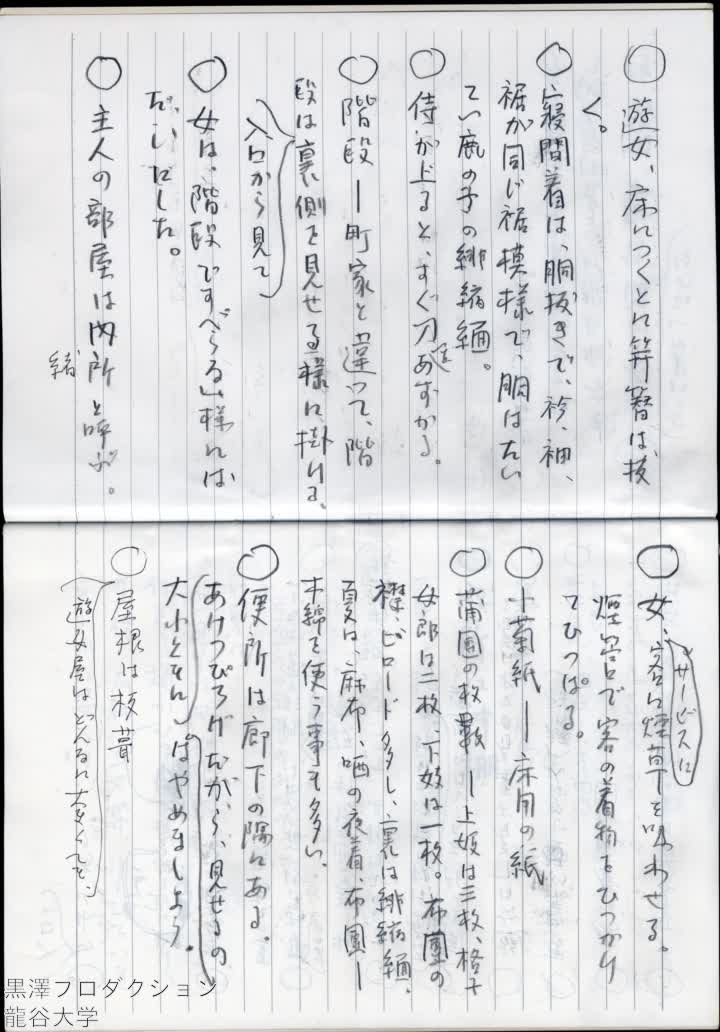 ○ 遊女、床につくとに笄簪は抜
く。
○ 寝間着は、胴抜きで、衿、袖、
裾が同じ裾模様で、胴はたい
てい鹿の子の緋縮緬。
○ 侍が上ると、すぐ刀あずかる。
○ 階段ー町家と違って、階
段は裏側を見せる様に掛ける、
入口から見て
○ 女は、階段ですべらない様に
だいじた。
○ 主人の部屋は内所と呼ぶ。
緒
○ 女、客に煙草を吸わせる。
サービスに
煙管で客の着物をひっかけ
てひっぱる。
○ 小菊紙ー床用の紙
○ 蒲団の枚数ー上妓は三枚、格子
女郎は二枚、下妓は一枚。布團の
襟、ビロード多し、裏は緋縮緬、
夏は、麻布、晒の夜着、布團ー
木綿を使う事も多い、
○ 便所は廊下の隅にある。
あけっぴろげだから、見せるの、
大小とも はやめましよう。
○ 屋根は板葺
遊女屋はどんなに大きくても、
黒澤プロダクション
龍谷大学